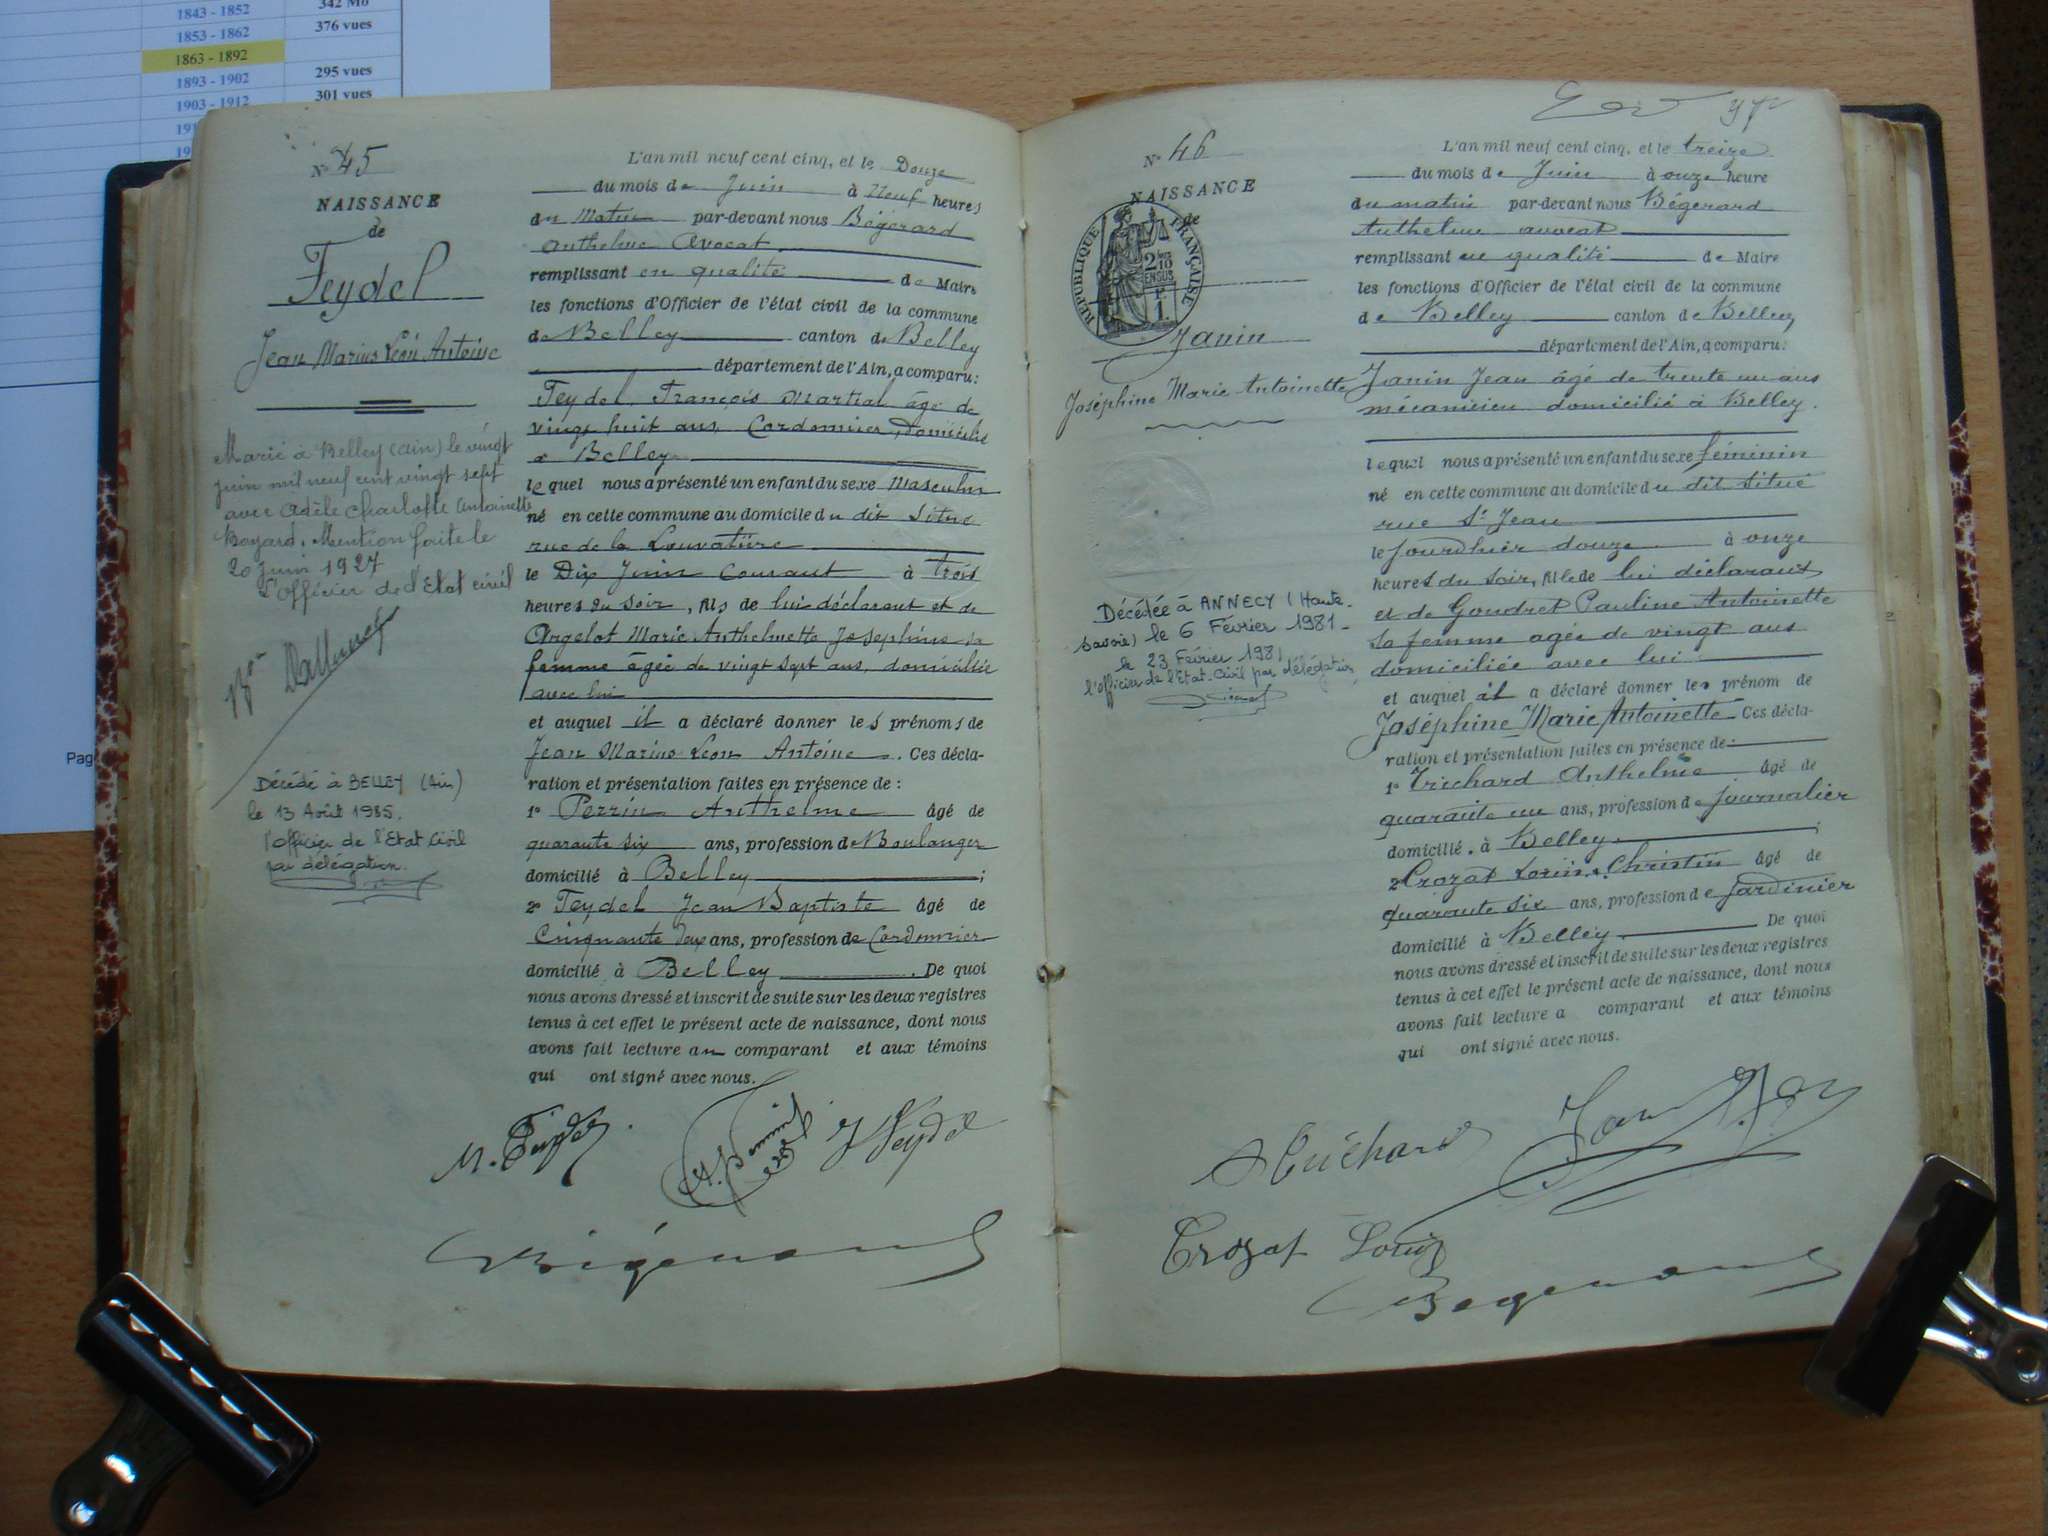 1843 - 1852
342 Mo
1853 - 1862
376 vues
1863 - 1892
1893 - 1902
295 vues
1903 - 1912
301 vues
Pag
N° 45
NAISSANCE
de
Feydel
Jean Marius Léon Antoine
Marié à Belley (Ain) le vingt
juin mil neuf cent vingt sept
avec Adèle Charlotte Antoinette
Bayard. Mention faite le
20 juin 1927
L'officier de l'Etat civil
Décédé à BELLEY (Ain)
le 13 Août 1985.
l'officier de l'Etat Civil
par délégation.
L'an mil neuf cent cinq, et le Douze
du mois de Juin à Neuf heures
du Matin par-devant nous Bégerard
Anthelme Avocat
remplissant en qualité de Maire
les fonctions d'Officier de l'état civil de la commune
de Belley canton de Belley
département de l'Ain, a comparu:
Feydel, François Martial âgé de
vingt huit ans, Cordonnier, domicilié
à Belley
lequel nous a présenté un enfant du sexe Masculin
né en cette commune au domicile du dit situé
rue de la Louvatière
le Dix Juin Courant à trois
heures du soir, fils de lui déclarant et de
Argelot Marie Anthelmette Joséphine sa
femme âgée de vingt sept ans, domiciliée
avec lui
et auquel il a déclaré donner les prénoms de
Jean Marius Leon Antoine. Ces décla-
ration et présentation faites en présence de :
1° Perrin Anthelme âgé de
quarante six ans, profession de Boulanger
domicilié à Belley ;
2° Feydel Jean Baptiste âgé de
Cinquante deux ans, profession de Cordonnier
domicilié à Belley. De quoi
nous avons dressé et inscrit de suite sur les deux registres
tenus à cet effet le présent acte de naissance, dont nous
avons fait lecture au comparant et aux témoins
qui ont signé avec nous.
M. Feydel
J Feydel
Bégerard
N° 46
NAISSANCE
de
REPUBLIQUE FRANÇAISE
2/10
EN SUS
1 F.
Janin
Joséphine Marie Antoinette
Décédée à ANNECY (Haute-
Savoie) le 6 Février 1981-
le 23 Février 1981
l'officier de l'Etat-Civil par délégation
L'an mil neuf cent cinq, et le treize
du mois de Juin à onze heure
du matin par-devant nous Bégerard
Anthelme avocat
remplissant en qualité de Maire
les fonctions d'Officier de l'état civil de la commune
de Belley canton de Belley
département de l'Ain, a comparu:
Janin Jean âgé de trente un ans
mécanicien domicilié à Belley.
lequel nous a présenté un enfant du sexe féminin
né en cette commune au domicile du dit situé
rue St Jean
le jourdhier douze à onze
heures du soir, fille de lui déclarant
et de Goudret Pauline Antoinette
sa femme agée de vingt ans
domiciliée avec lui
et auquel il a déclaré donner les prénom de
Joséphine Marie Antoinette Ces décla-
ration et présentation faites en présence de:
1° Trichard Anthelme âgé de
quarante un ans, profession de journalier
domicilié à Belley ;
2° Crozat Louis Christin âgé de
quarante six ans, profession de Jardinier
domicilié à Belley De quoi
nous avons dressé et inscrit de suite sur les deux registres
tenus à cet effet le présent acte de naissance, dont nous
avons fait lecture a comparant et aux témoins
qui ont signé avec nous.
Crozat Louis
Begerard